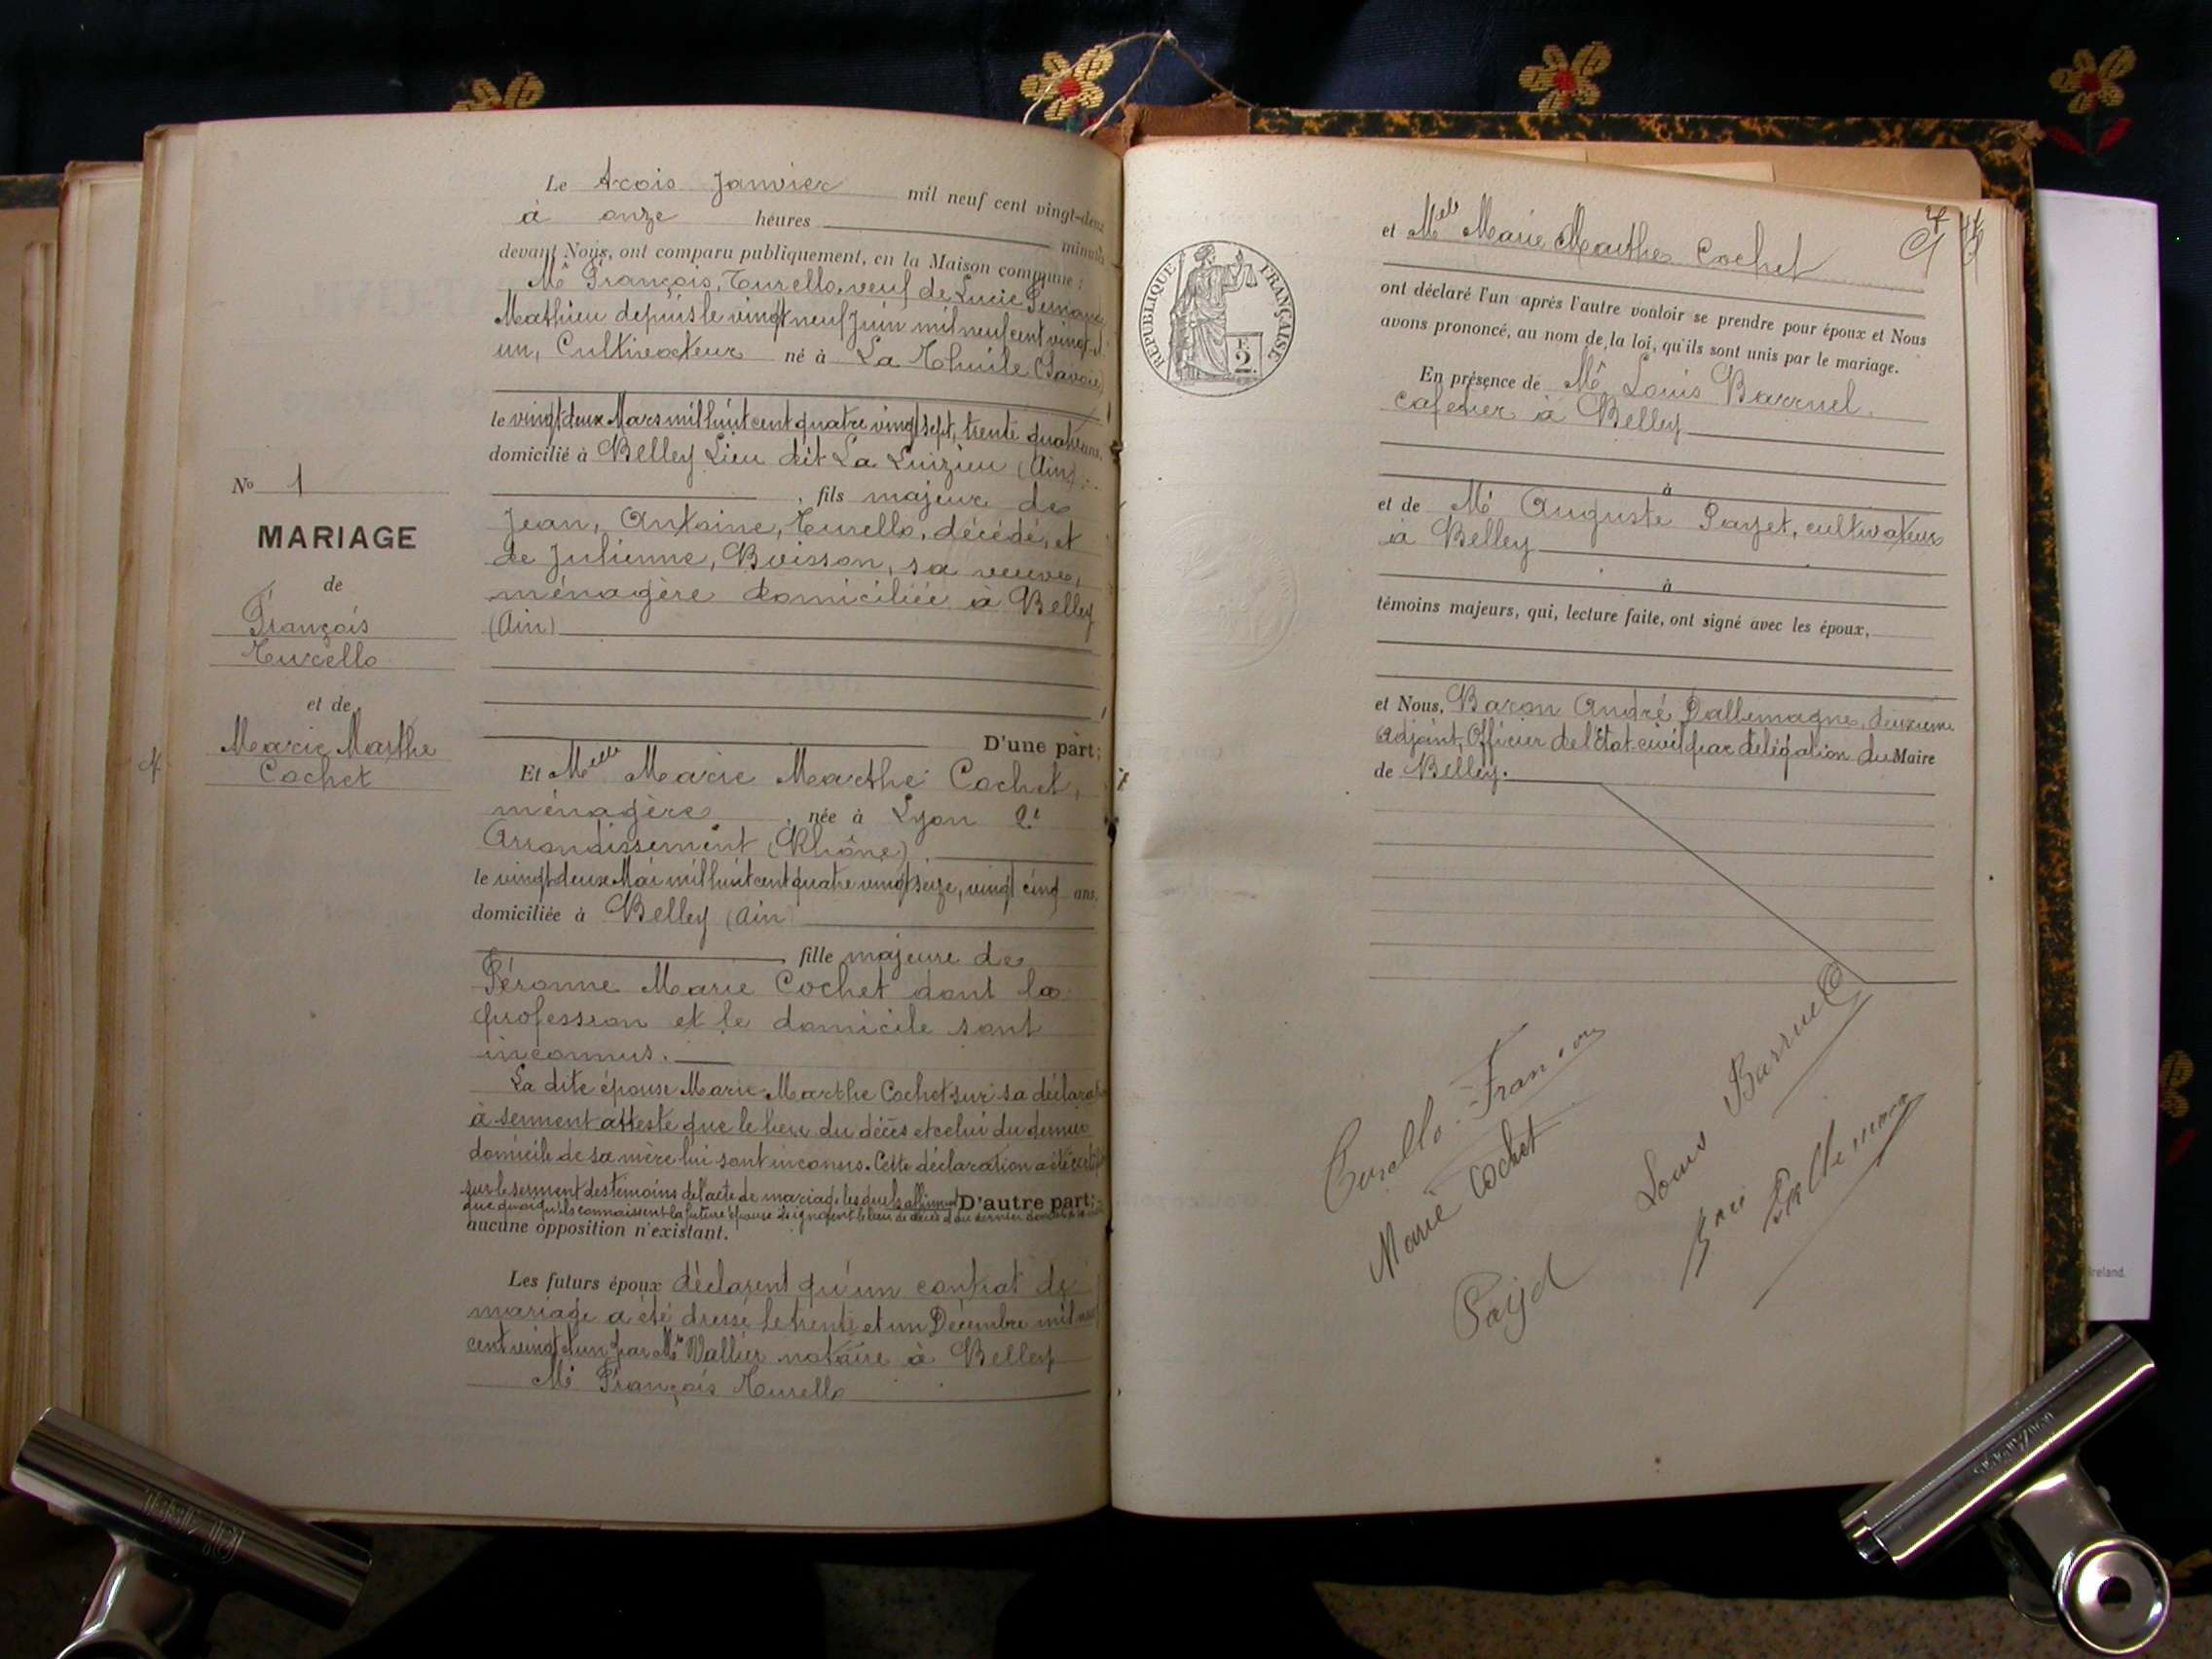 N° 1
MARIAGE
de
François
Turello
et de
Marie Marthe
Cochet
Le trois Janvier mil neuf cent vingt-deux
à onze heures minutes
devant Nous, ont comparu publiquement, en la Maison commune :
Mr François, Turello, veuf de Lucie
Mathieu depuis le vingt neuf Juin mil neuf cent vingt et
un, Cultivateur né à La Thuile (Savoie)
le vingt deux Mars mil huit cent quatre vingt sept, trente quatre ans,
domicilié à Belley Lieu dit La (Ain)
, fils majeur de
Jean, Antoine, Turello, décédé, et
de Julienne, Buisson, sa veuve,
ménagère domiciliée à Belley
(Ain)
D'une part;
Et Melle Marie Marthe Cochet,
ménagère , née à Lyon 2e
Arrondissement (Rhône)
le vingt deux Mai mil huit cent quatre vingt seize, vingt cinq ans,
domiciliée à Belley (Ain)
, fille majeure de
Péronne Marie Cochet dont la
profession et le domicile sont
inconnus.
La dite épouse Marie Marthe Cochet sur sa déclaration
à serment atteste que le lieu du décès et celui du dernier
domicile de sa mère lui sont inconnus. Cette déclaration a été certifiée
sur le serment des témoins de l'acte de mariage lesquels affirment D'autre part;
que quoiqu'ils connaissent la future épouse ils ignorent le lieu de décès et du dernier domicile
aucune opposition n'existant.
Les futurs époux déclarent qu'un contrat de
mariage a été dressé le trente et un Décembre mil neuf
cent vingt et un par Me Vallier notaire à Belley
Mr François Turello
RÉPUBLIQUE FRANÇAISE
2
F.
et Melle Marie Marthe Cochet
ont déclaré l'un après l'autre vouloir se prendre pour époux et Nous
avons prononcé, au nom de la loi, qu'ils sont unis par le mariage.
En présence de Mr Louis Barruel,
cafetier à Belley
à
et de Mr Auguste Payet, cultivateur
à Belley
à
témoins majeurs, qui, lecture faite, ont signé avec les époux,
et Nous, Baron André Dallemagne, deuxième
Adjoint, Officier de l'État-civil par délégation du Maire
de Belley.
Turello François
Marie Cochet
Louis Barruel
Payet
Dallemagne